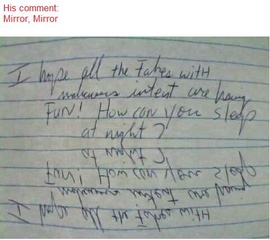 His comment:
Mirror, Mirror
I hope all the fakes with
malicious intent are having
FUN! How can you sleep
at night?